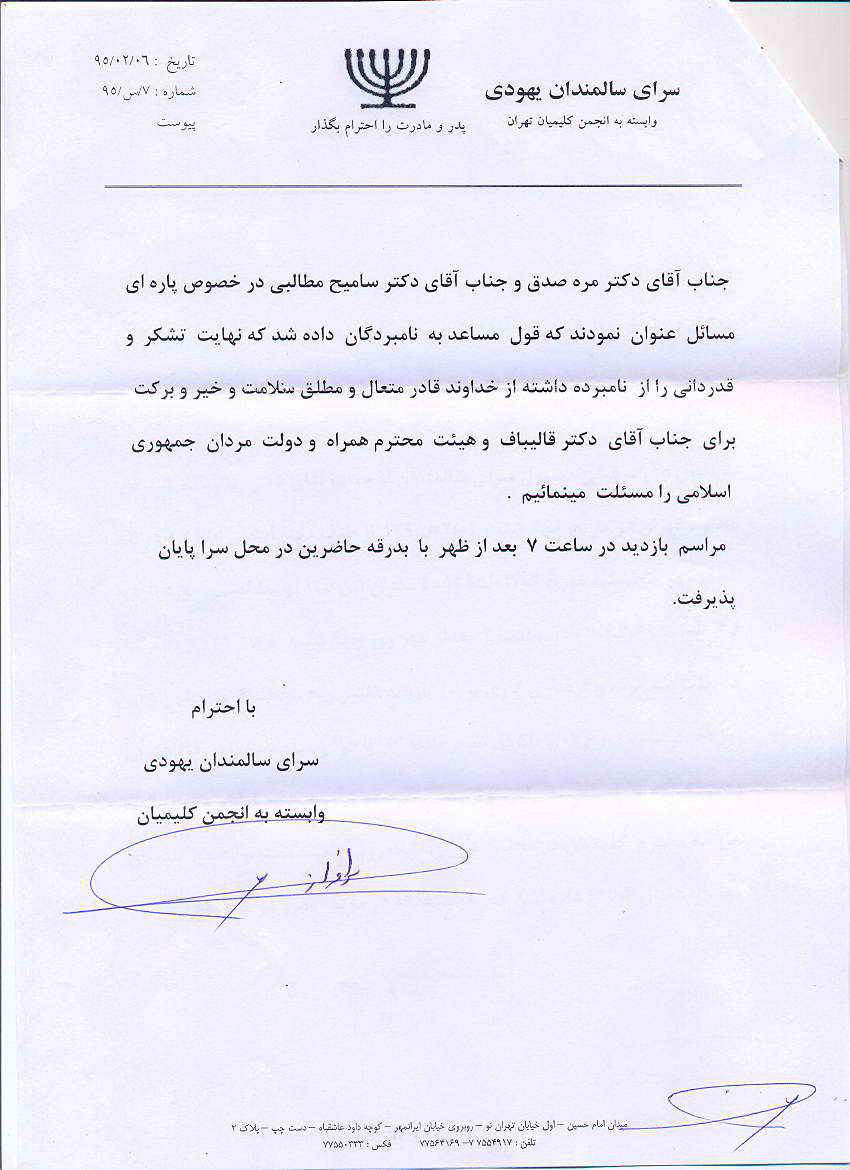 سرای سالمندان یهودی
وابسته به انجمن کلیمیان تهران
پدر و مادرت را احترام بگذار
تاریخ : ۹۵/۰۲/۰۶
شماره : ۷/س/۹۵
پیوست
جناب آقای دکتر مره صدق و جناب آقای دکتر سامیح مطالبی در خصوص پاره ای
مسائل عنوان نمودند که قول مساعد به نامبردگان داده شد که نهایت تشکر و
قدردانی را از نامبرده داشته از خداوند قادر متعال و مطلق سلامت و خیر و برکت
برای جناب آقای دکتر قالیباف و هیئت محترم همراه و دولت مردان جمهوری
اسلامی را مسئلت مینمائیم .
مراسم بازدید در ساعت ۷ بعد از ظهر با بدرقه حاضرین در محل سرا پایان
پذیرفت.
با احترام
سرای سالمندان یهودی
وابسته به انجمن کلیمیان
میدان امام حسین – اول خیابان تهران نو – روبروی خیابان ایرانمهر – کوچه داود عاشقباه – دست چپ – پلاک ۲
تلفن : ۷۷۵۵۴۹۱۷ – ۷۷۵۶۴۱۶۹ فکس : ۷۷۵۵۰۳۳۳